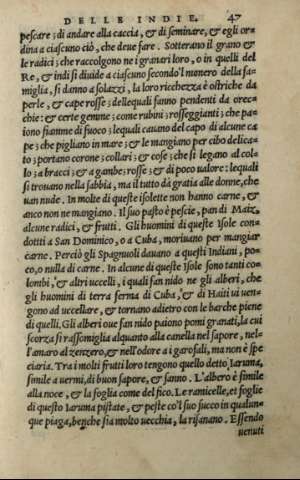 DELLE INDIE. 47
pescare; di andare alla caccia, & di seminare, & egli or-
dina a ciascuno ciò, che deue fare. Sotterano il grano &
le radici; che raccolgono ne i granari loro, o in quelli del
Re, & indi si diuide a ciascuno secondo'l numero della fa-
miglia, si danno a solazzi, la loro ricchezza è ostriche da
perle, & cape rosse; dellequali fanno pendenti da orec-
chie: & certe gemme; come rubini; rosseggianti; che pa-
iono fiamme di fuoco; lequali cauano del capo di alcune ca
pe; che pigliano in mare; & le mangiano per cibo delica-
to; portano corone; collari; & cose; che si legano al col-
lo; a bracci; & a gambe; rosse; & di poco ualore: lequali
si trouano nella sabbia, ma il tutto dà gratia alle donne, che
uan nude. In molte di queste isolette non hanno carne, &
anco non ne mangiano. Il suo pasto è pescie, pan di Maiz,
alcune radici, & frutti. Gli huomini di queste Isole con-
dottti a San Dominico, o a Cuba, moriuano per mangiar
carne. Perciò gli Spagnuoli dauano a questi Indiani, po-
co, o nulla di carne. In alcune di queste Isole sono tanti co-
lombi, & altri uccelli, i quali fan nido ne gli alberi, che
gli huomini di terra ferma di Cuba, & di Haiti ui uen-
gono ad uccellare, & tornano adietro con le barche piene
di quelli. Gli alberi oue fan nido paiono pomi granati, la cui
scorza si rassomiglia alquanto alla canella nel sapore, nel-
l'amaro al zenzero, & nell'odore a i garofali, ma non è spe
ciaria. Tra i molti frutti loro tengono quello detto Iaruma,
simile a uermi, di buon sapore, & sanno. L'albero è simile
alla noce, & la foglia come del fico. Le ramicelle, et foglie
di questo Iaruma pistate, & peste co'l suo succo in qualun-
que piaga, benche sia molto uecchia, la risanano. Essendo
uenuti